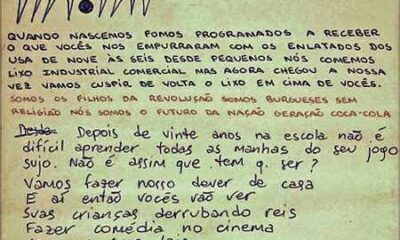 QUANDO NASCEMOS FOMOS PROGRAMADOS A RECEBER
O QUE VOCÊS NOS EMPURRARAM COM OS ENLATADOS DOS
USA DE NOVE ÀS SEIS DESDE PEQUENOS NÓS COMEMOS
LIXO INDUSTRIAL COMERCIAL MAS AGORA CHEGOU A NOSSA
VEZ VAMOS CUSPIR DE VOLTA O LIXO EM CIMA DE VOCÊS.
SOMOS OS FILHOS DA REVOLUÇÃO SOMOS BURGUESES SEM
RELIGIÃO NÓS SOMOS O FUTURO DA NAÇÃO GERAÇÃO COCA-COLA
Desde Depois de vinte anos na escola não é
difícil aprender todas as manhas do seu jogo
sujo. Não é assim que tem q. ser?
Vamos fazer nosso dever de casa
E aí então vocês vão ver
Suas crianças derrubando reis
Fazer comédia no cinema